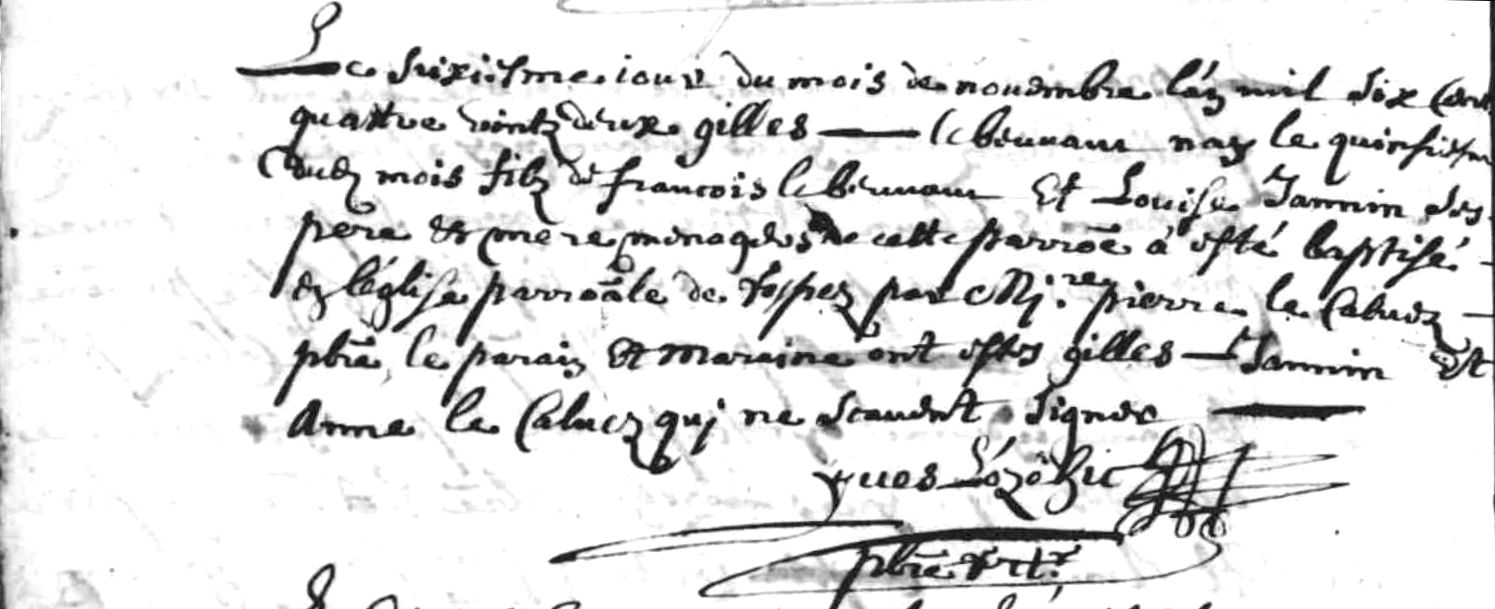 Le sixiesme jour du mois de novembre l'an mil six cent
quattre vintz deux gilles — le bervam nay le quinsiesme
dudt mois filz de francois le bervam Et Louise Jannin ses
pere et mere menagers de cette parroe a esté baptisé —
en l'église parroale de pez par Mre pierre le Calvez —
pbre, le parain Et maraine ont estes gilles — Jannin Et
Anne le Calvez qui ne scavent signer —
yves Lozohic
pbre